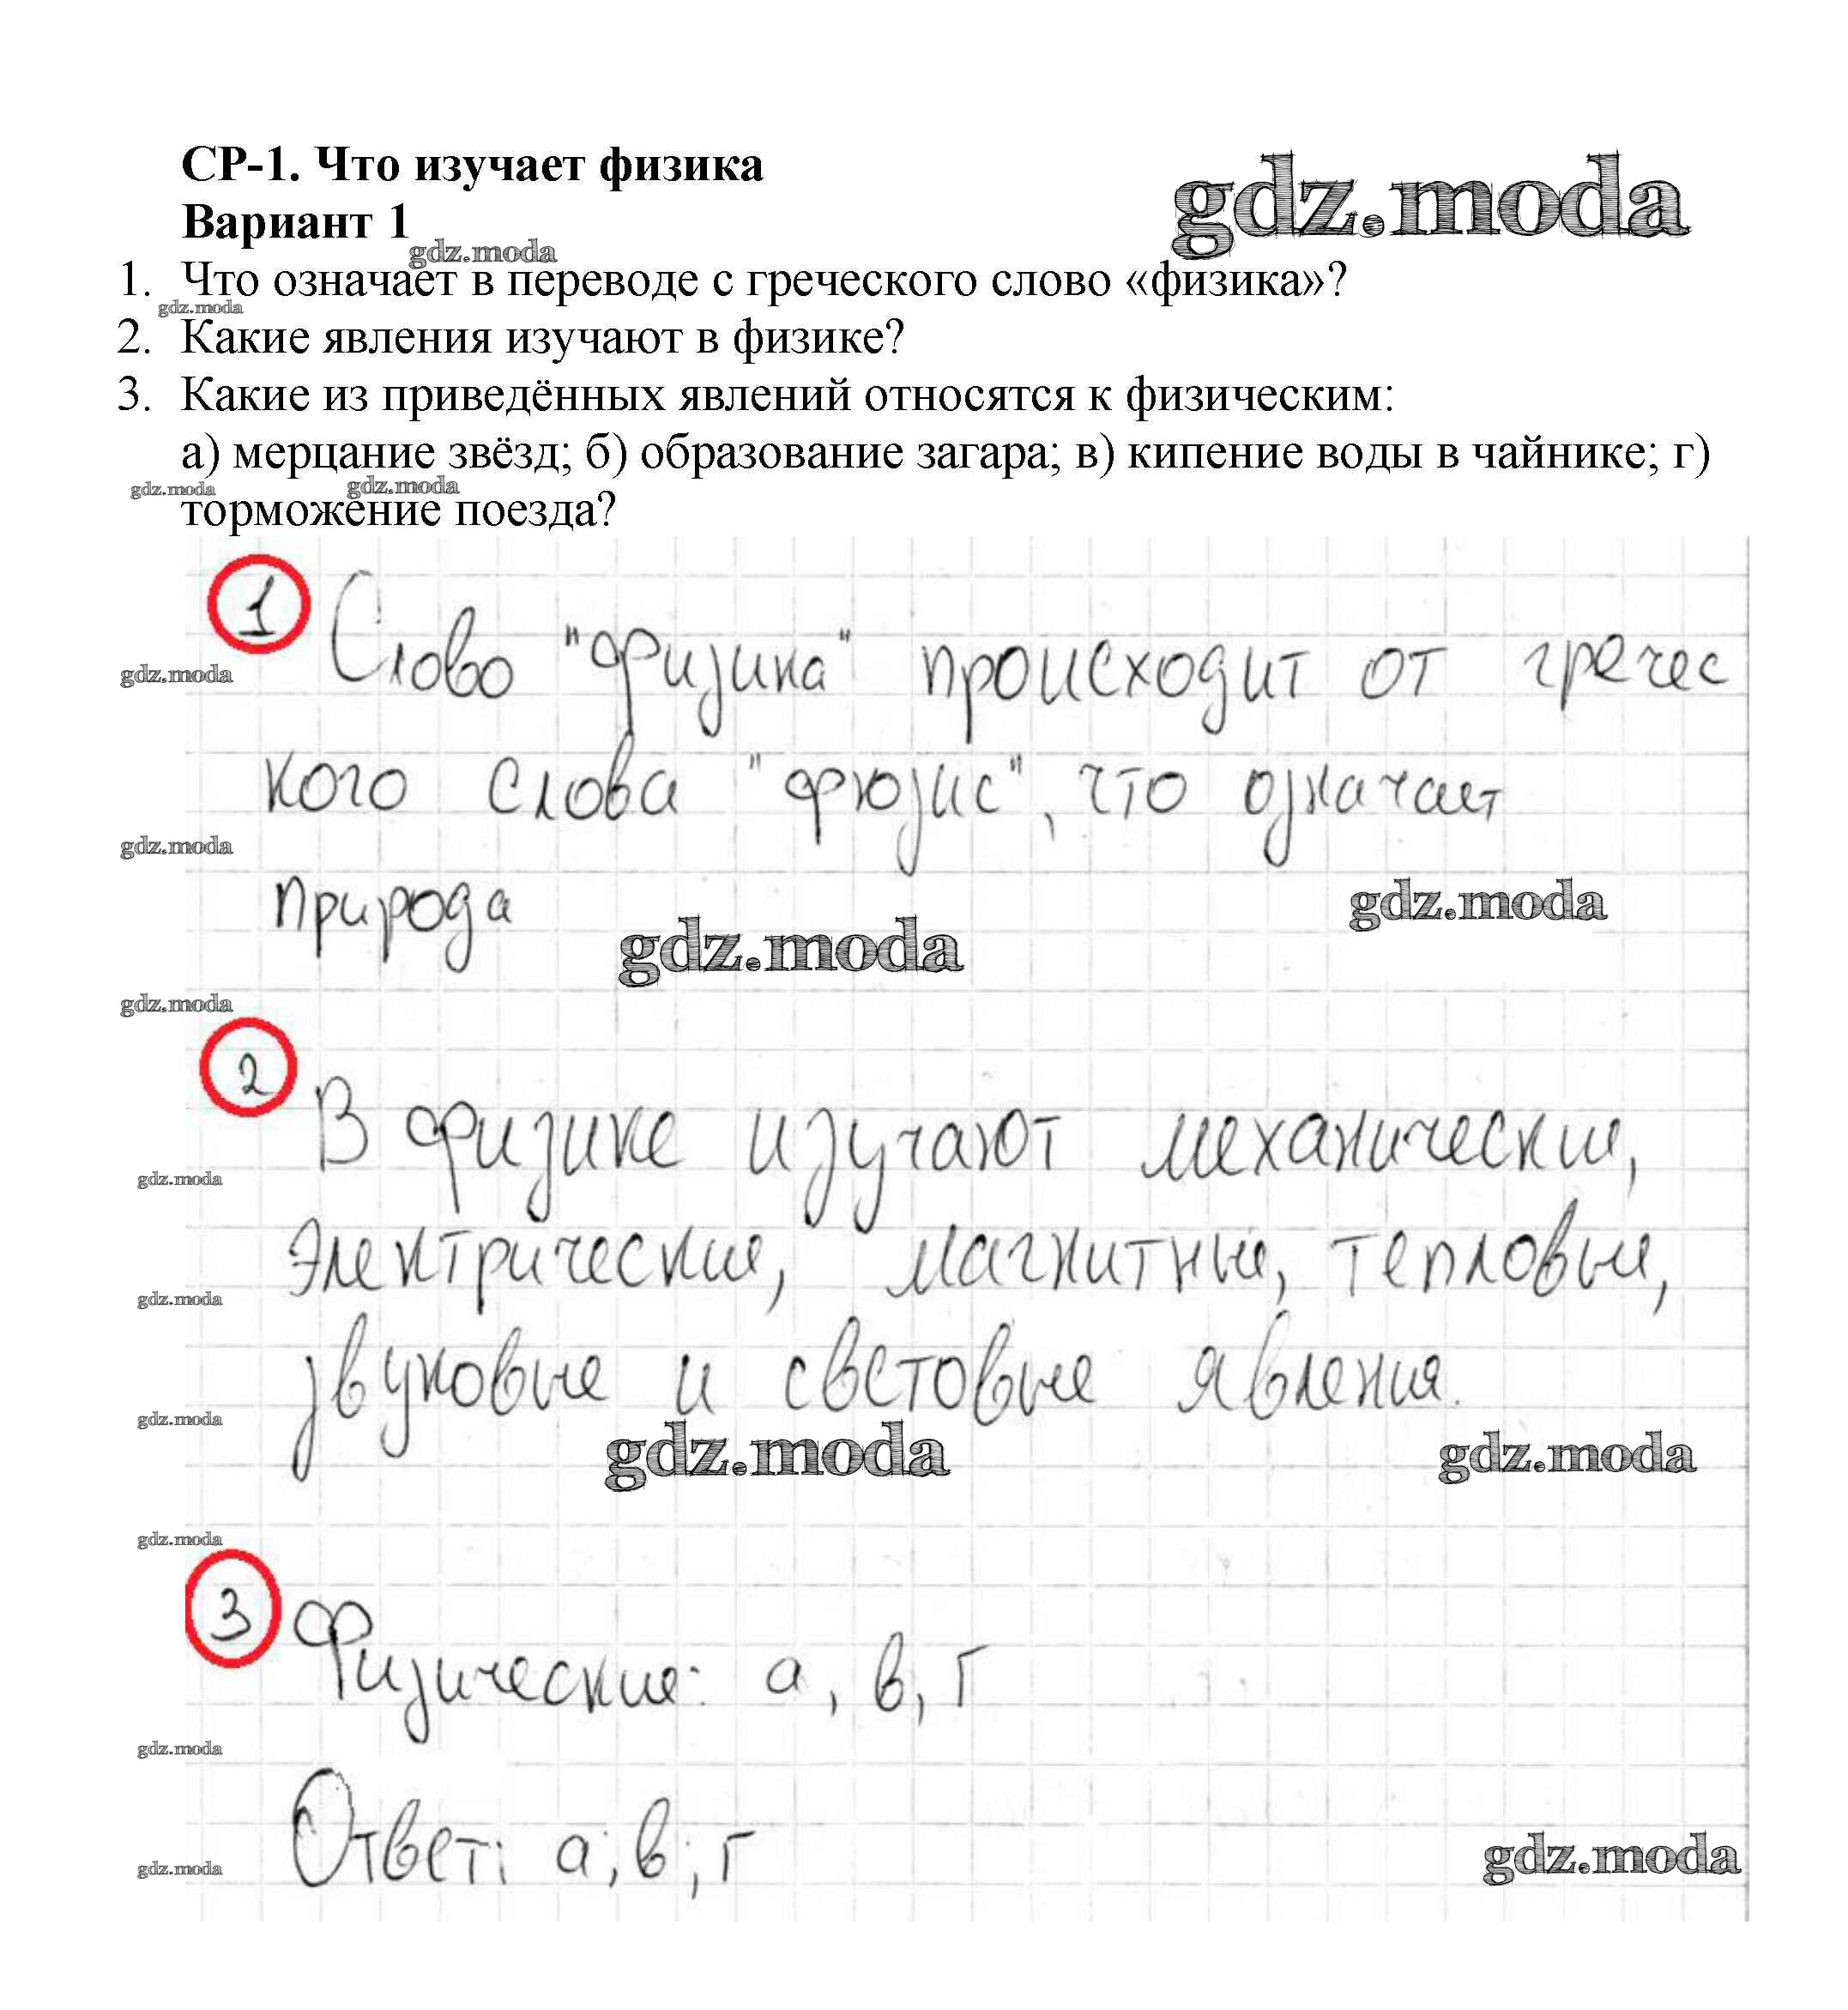 СР-1. Что изучает физика
gdz.moda
Вариант 1
gdz.moda
1. Что означает в переводе с греческого слово «физика»?
gdz.moda
2. Какие явления изучают в физике?
3. Какие из приведённых явлений относятся к физическим:
а) мерцание звёзд; б) образование загара; в) кипение воды в чайнике; г)
gdz.moda gdz.moda
торможение поезда?
1 Слово "физика" происходит от гречес
gdz.moda
кого слова "фюзис", что означает
gdz.moda
природа
gdz.moda
gdz.moda
gdz.moda
2 В физике изучают механические,
gdz.moda
электрические, магнитные, тепловые,
gdz.moda
звуковые и световые явления.
gdz.moda
gdz.moda gdz.moda
gdz.moda
3 Физические: а, в, г
gdz.moda
Ответ: а; в; г
gdz.moda gdz.moda